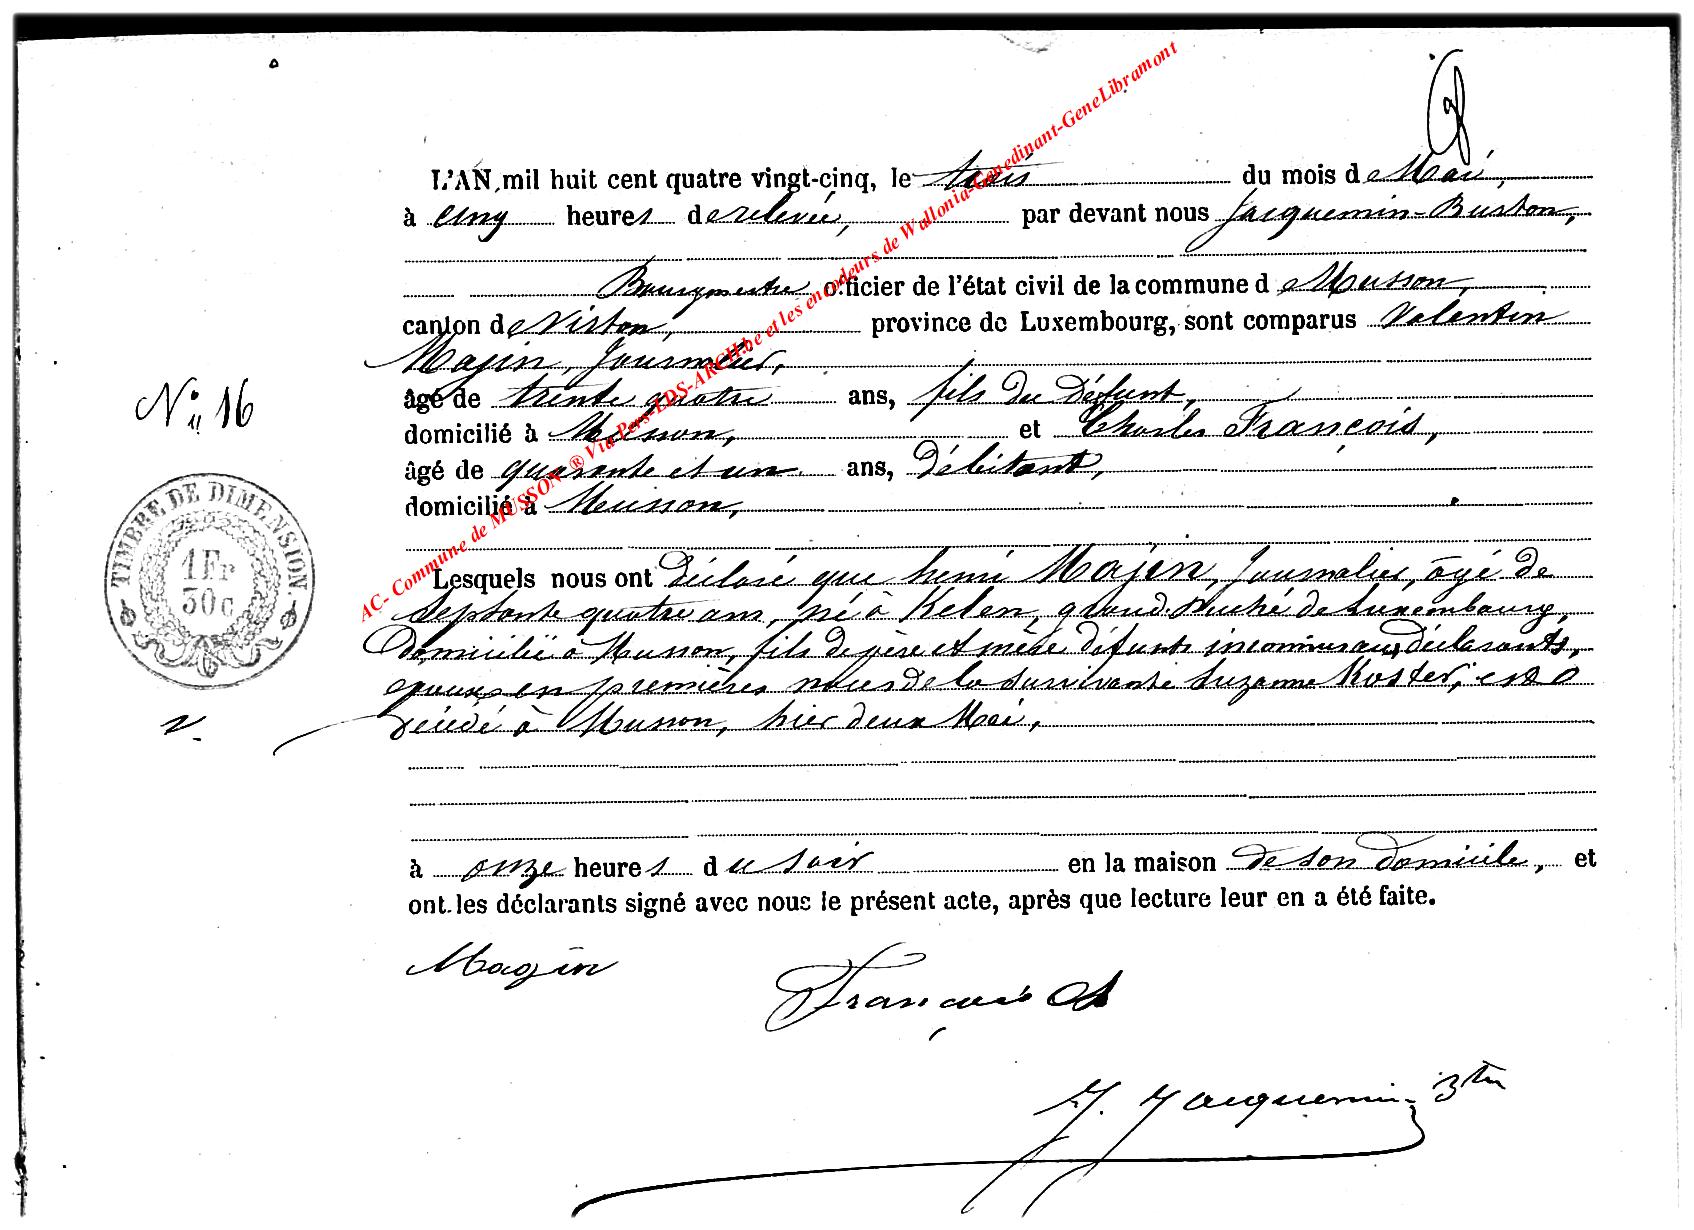 L'AN mil huit cent quatre vingt-cinq, le trois du mois de Mai,
à cinq heures de relevée, par devant nous Jacquemin-Burton,
Bourgmestre officier de l'état civil de la commune de Musson,
canton de Virton, province de Luxembourg, sont comparus Valentin
Majin, Journalier,
âgé de trente quatre ans, fils du Défunt,
domicilié à Musson, et Charles François,
âgé de quarante et un ans, Débitant,
domicilié à Musson,
N° 16
TIMBRE DE DIMENSION.
1 Fr
30 c
Lesquels nous ont déclaré que henri Majin, Journalier, âgé de
Septante quatre ans, né à Kelen, grand Duché de Luxembourg,
Domicilié à Musson, fils de père et mère défunts inconnus aux déclarants,
époux en premières noces de la survivante Suzanne Koster, est
décédé à Musson, hier deux Mai,
à onze heures du soir en la maison de son domicile, et
ont les déclarants signé avec nous le présent acte, après que lecture leur en a été faite.
Magin
François
J. Jacquemin-
AC- Commune de MUSSON ® Via Pers-EDS-ARCH.be et les encodeurs de Wallonia-Genedinant-GeneLibramont